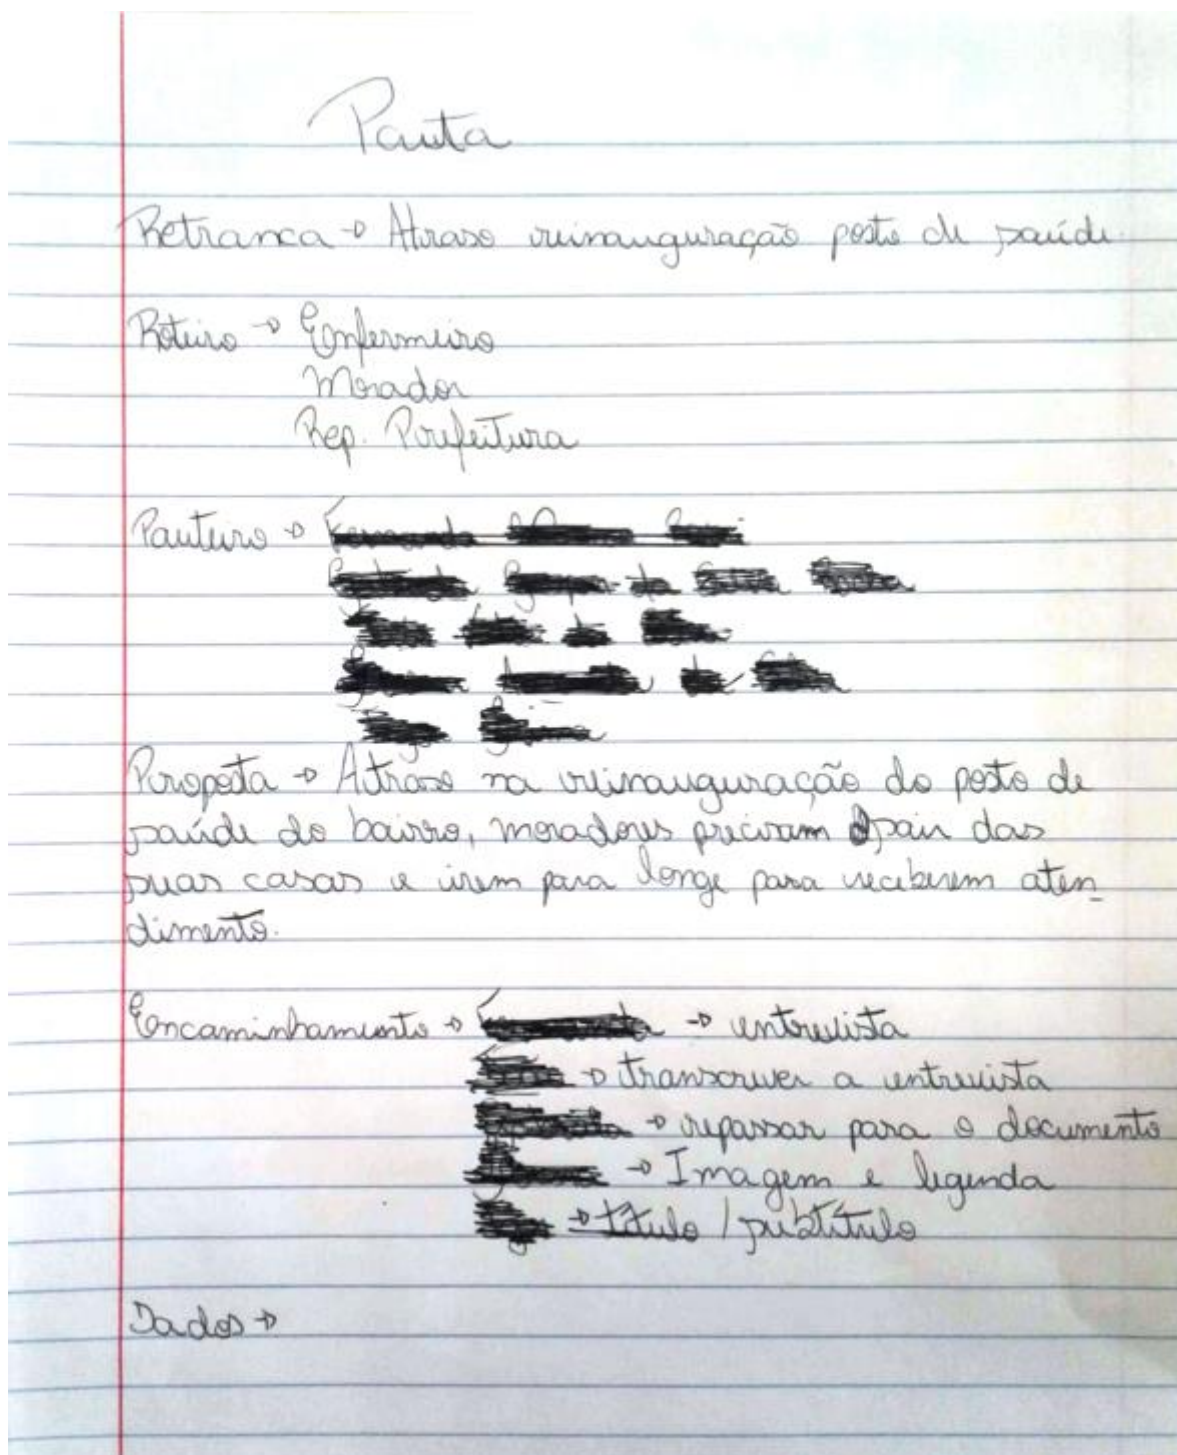 Pauta
Retranca → Atraso reinauguração posto de saúde
Roteiro → Enfermeiro
Morador
Rep. Prefeitura
Pauteiro →
Proposta → Atraso na reinauguração do posto de
saúde do bairro, moradores precisam sair das
suas casas e irem para longe para receberem aten_
dimento.
Encaminhamento → → entrevista
→ transcrever a entrevista
→ repassar para o documento
→ Imagem e legenda
→ título / subtítulo
Dados →